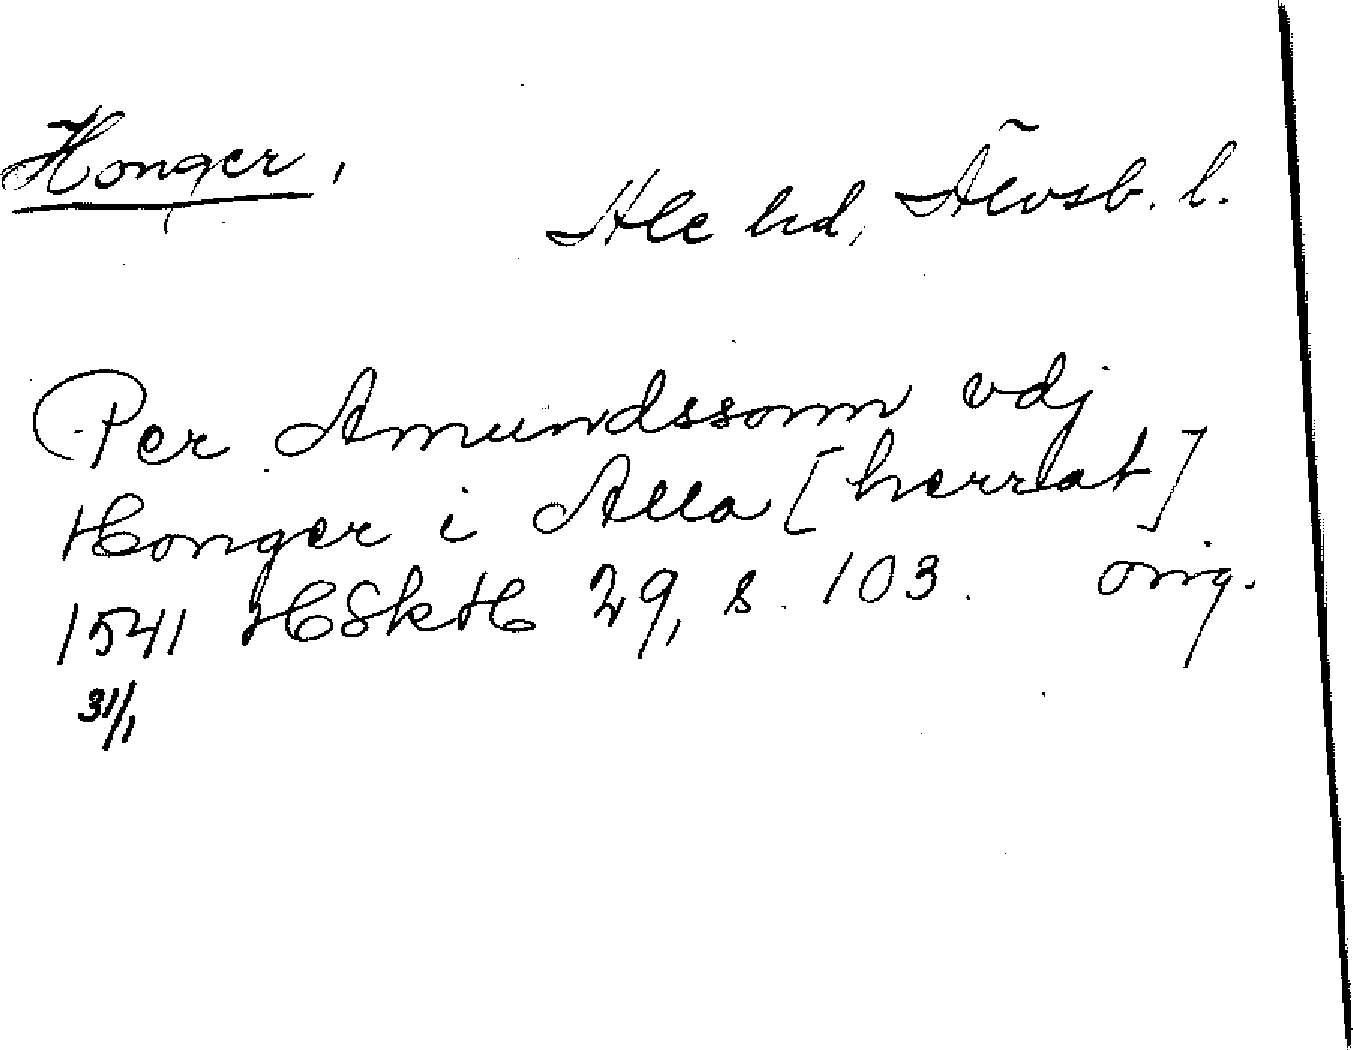 Honger,
Ale hd, Älvsb. l.
Per Amundssonn vdj
Honger i Alla [herrat]
1541 HSkH 29, s. 103. orig.
31/1